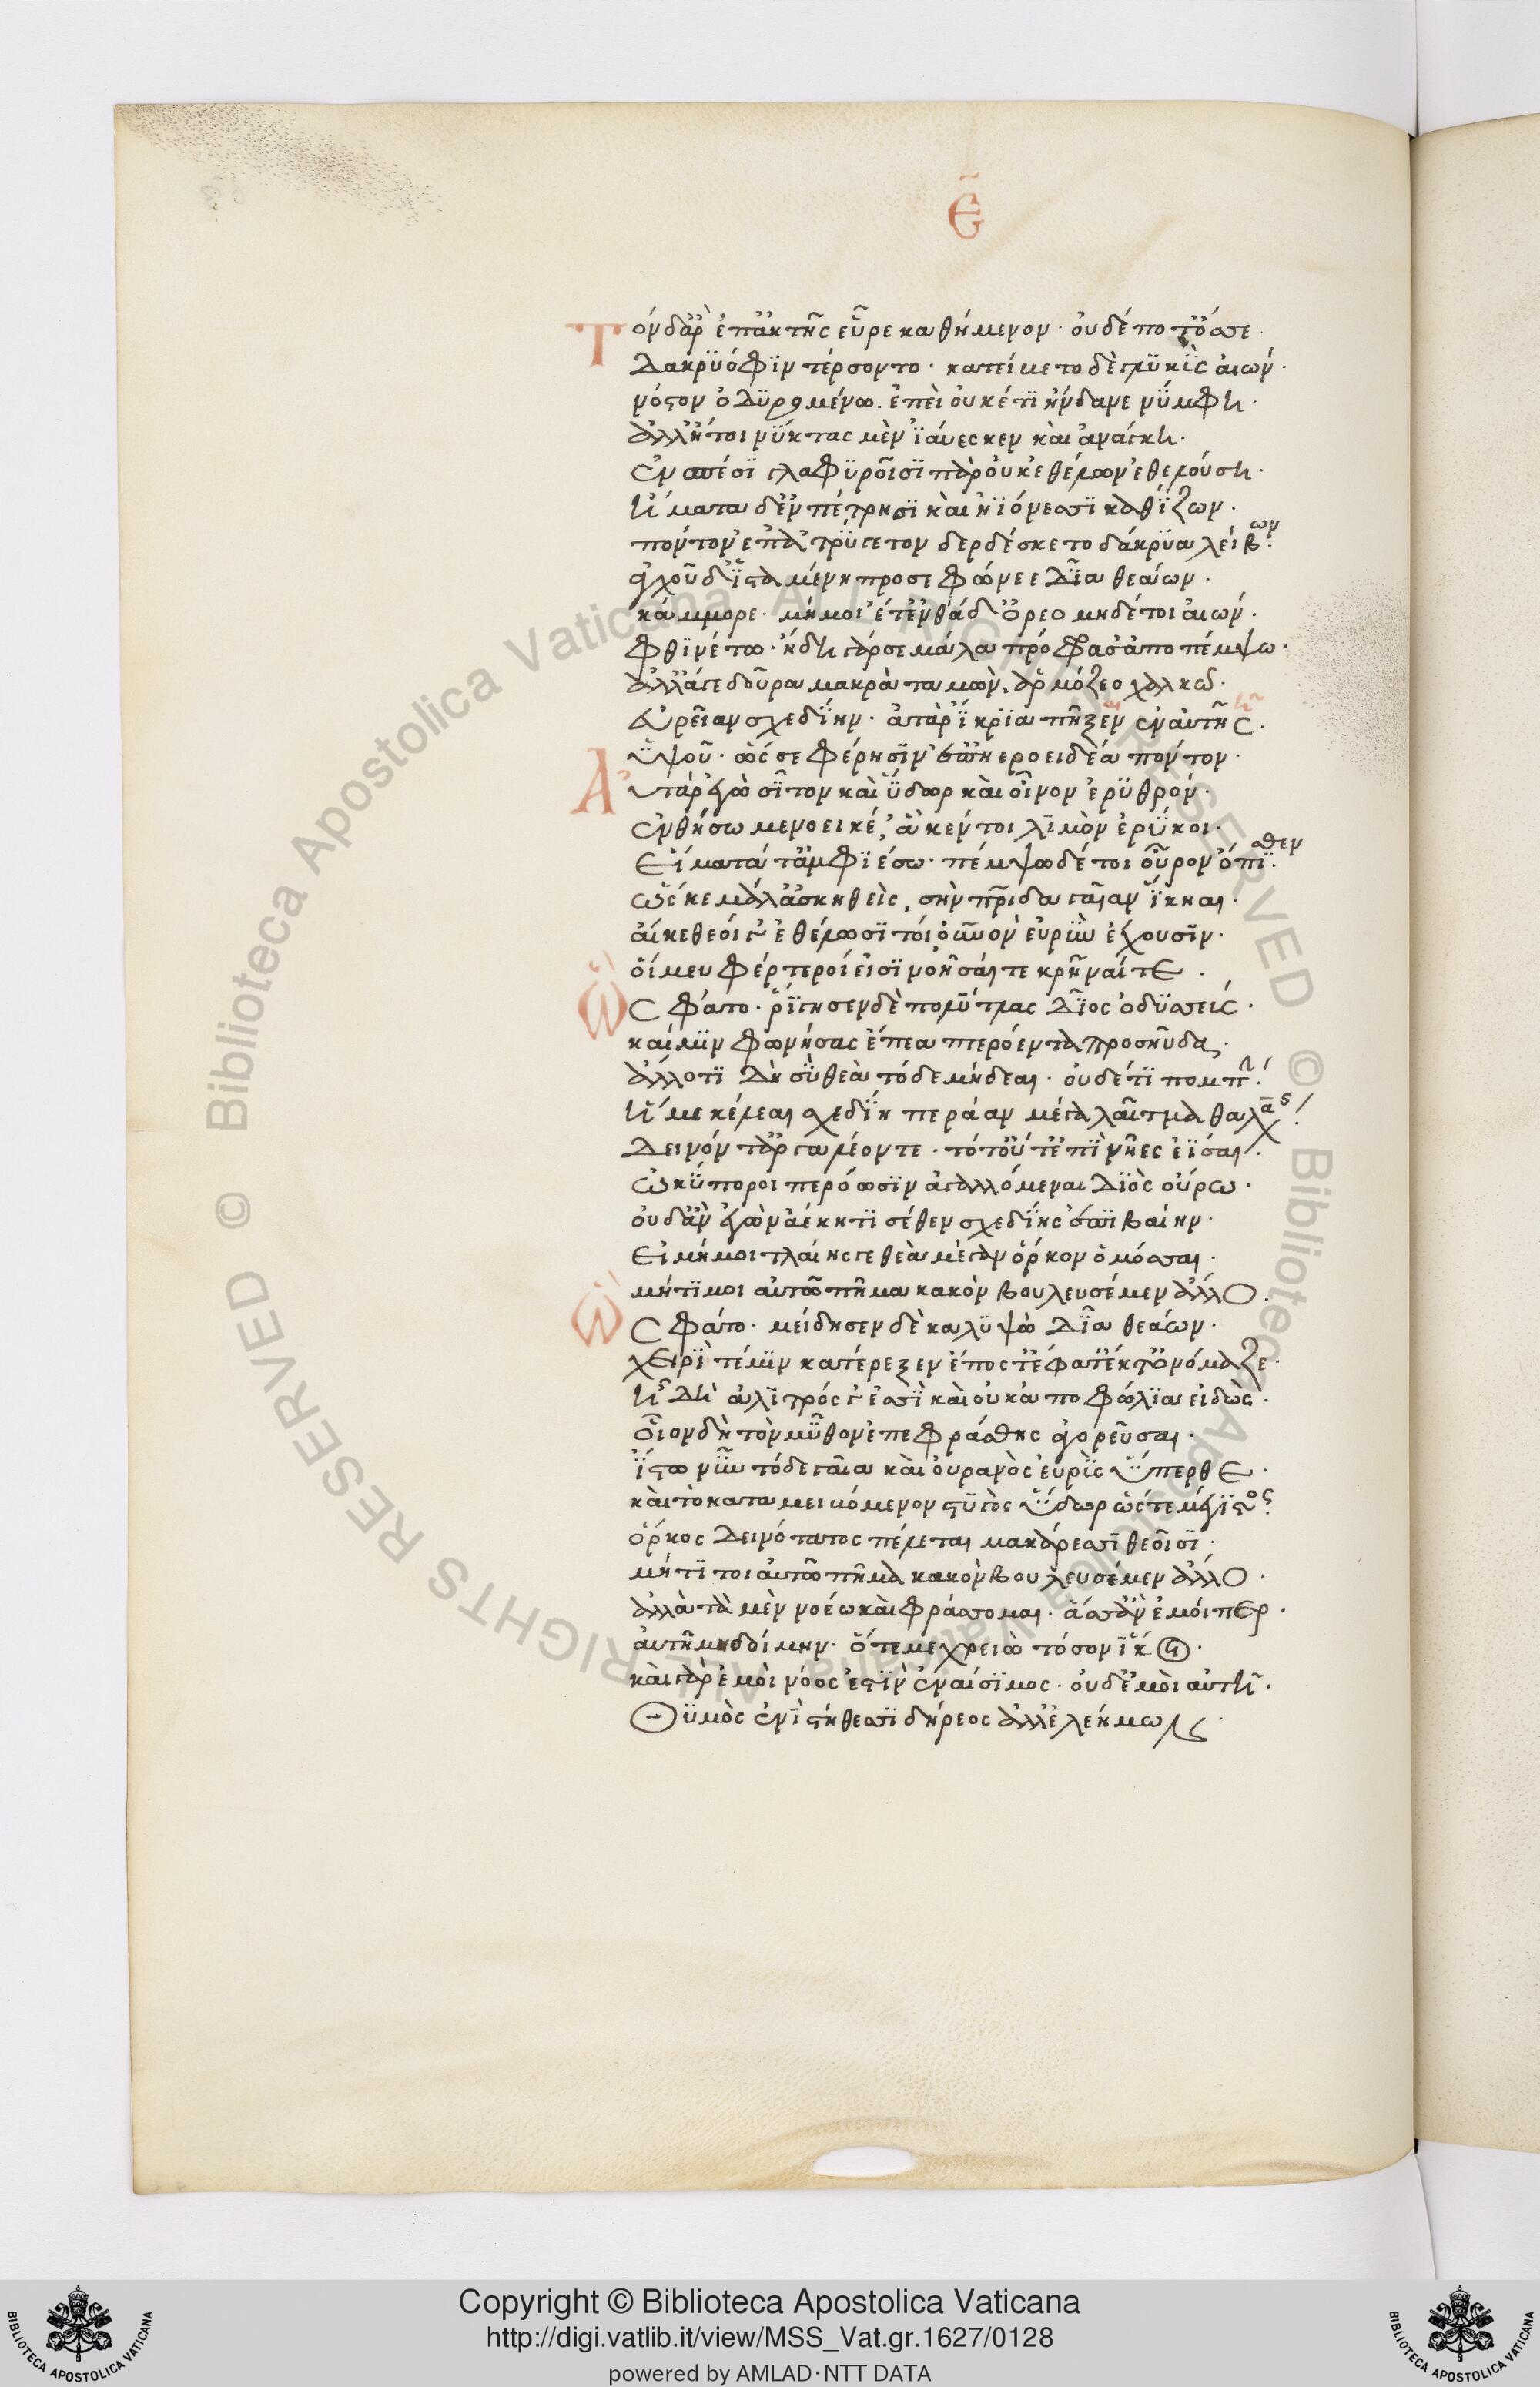 Ε̃
Τὸν δ' ἄρ' ἐπ' ἀκτῆς εὗρε καθήμενον· οὐδέ ποτ' ὄσσε·
Δακρϋόφϊν τέρσοντο· κατείβετο δὲ γλϋκὺς αἰών·
νόστον ὀδϋρομένω. ἐπεὶ οὐκέτϊ ἥνδανε νύμφη·
ἀλλ' ἤτοι νύκτας μὲν ἰαύεσκεν καὶ ἀνάγκη·
ἐν σπέσϊ γλαφϋροῖσϊ παρ' οὐκ ἐθέλων ἐθελούση·
ἤματα δ' ἐν πέτρησϊ καὶ ἠϊόνεσσϊ καθΐζων·
πόντον ἐπ' ἀτρύγετον δερδέσκετο δάκρϋα λείβων·
ἀγχοῦ δ' ἱσταμένη προσεφώνεε δῖα θεάων·
κάμμορε· μή μοι ἔτ' ἐνθάδ' ὀδύρεο μηδέ τοι αἰών·
φθϊνέτω· ἤδη γάρ σε μάλα πρόφρασσ' ἀποπέμψω·
ἀλλ' ἄγε δοῦρα μακρὰ ταμὼν, ἁρμόζεο χαλκῶ·
εὐρεῖαν σχεδΐην· ἀτὰρ ἴκρϊα πῆξεν ἐν αὐτῆς·
ὑψοῦ· ὥς σε φέρησϊν ἐπ' ἠεροειδέα πόντον·
Αὐτὰρ ἐγὼ σῖτον καὶ ὕδωρ καὶ οἶνον ἐρϋθρόν·
ἐνθήσω μενοεικέ', ἅ κέν τοι λϊμὸν ἐρύκοι·
Εἵματά τ' ἀμφϊέσω· πέμψω δέ τοι οὖρον ὄπισθεν·
ὥς κε μάλ' ἀσκηθεὶς, σὴν πατρίδα γαῖαν ἵκηαι·
αἴ κε θεοί γ' ἐθέλωσϊ τοὶ οὐρανὸν εὐρὺν ἔχουσϊν·
οἵ μευ φέρτεροί εἰσϊ νοῆσαί τε κρῆναί τε·
Ὣς φάτο· ῥίγησεν δὲ πολύτλας δῖος ὀδϋσσεύς·
καί μϊν φωνήσας ἔπεα πτερόεντα προσηύδα·
ἄλλο τϊ δὴ σὺ θεὰ τόδε μήδεαι· οὐδέ τϊ πομπήν·
ἥ με κέλεαι σχεδΐη περάαν μέγα λαῖτμα θαλάσσης·
Δεινόν τ' ἀργαλέον τε· τὸ τ' οὔτ' ἐπϊ νῆες ἐῖσαι·
ὠκύποροι περόωσϊν ἀγαλλόμεναι Διὸς οὔρω·
οὐδ' ἂν ἐγὼν ἀέκητϊ σέθεν σχεδίης ἐπϊβαίην·
Εἰ μή μοι τλαίης γε θεὰ μέγαν ὅρκον ὀμόσσαι·
μή τϊ μοι αὐτῶ πῆμα κακὸν βουλευσέμεν ἄλλο·
Ὣς φάτο· μείδησεν δὲ καλϋψὼ δῖα θεάων·
χειρΐ τέ μϊν κατέρεξεν ἔπος τ' ἔφατ' ἔκ τ' ὀνόμαζε·
ἦ δὴ ἀλϊτρός γ' ἐσσϊ καὶ οὐκ ἀποφώλϊα εἰδὼς·
οἷον δὴ τὸν μῦθον ἐπεφράσθης ἀγορεῦσαι·
ἴστω νῦν τόδε γαῖα καὶ οὐρανὸς εὐρὺς ὕπερθε·
καὶ τὸ κατα μειβόμενον στϋγὸς ὕδωρ ὥς τε μέγϊστος·
ὅρκος δεινότατος πέλεται μακάρεσσϊ θεοῖσϊ·
μή τϊ τοι αὐτῶ πῆμα κακὸν βουλευσέμεν ἄλλο·
ἀλλὰ τὰ μὲν νοέω καὶ φράσσομαι· ἅσσ' ἂν ἐμοί περ·
αὐτῆ μηδοίμην· ὅτε με χρειὼ τόσον ἵκοι·
καὶ γὰρ ἐμοὶ νόος ἐστϊν ἐναίσϊμος· οὐδέ μοι αὐτῆ·
Θϋμὸς ἐνὶ στήθεσσϊ σιδήρεος ἀλλ' ἐλεήμων·
Copyright © Biblioteca Apostolica Vaticana
http://digi.vatlib.it/view/MSS_Vat.gr.1627/0128
powered by AMLAD·NTT DATA